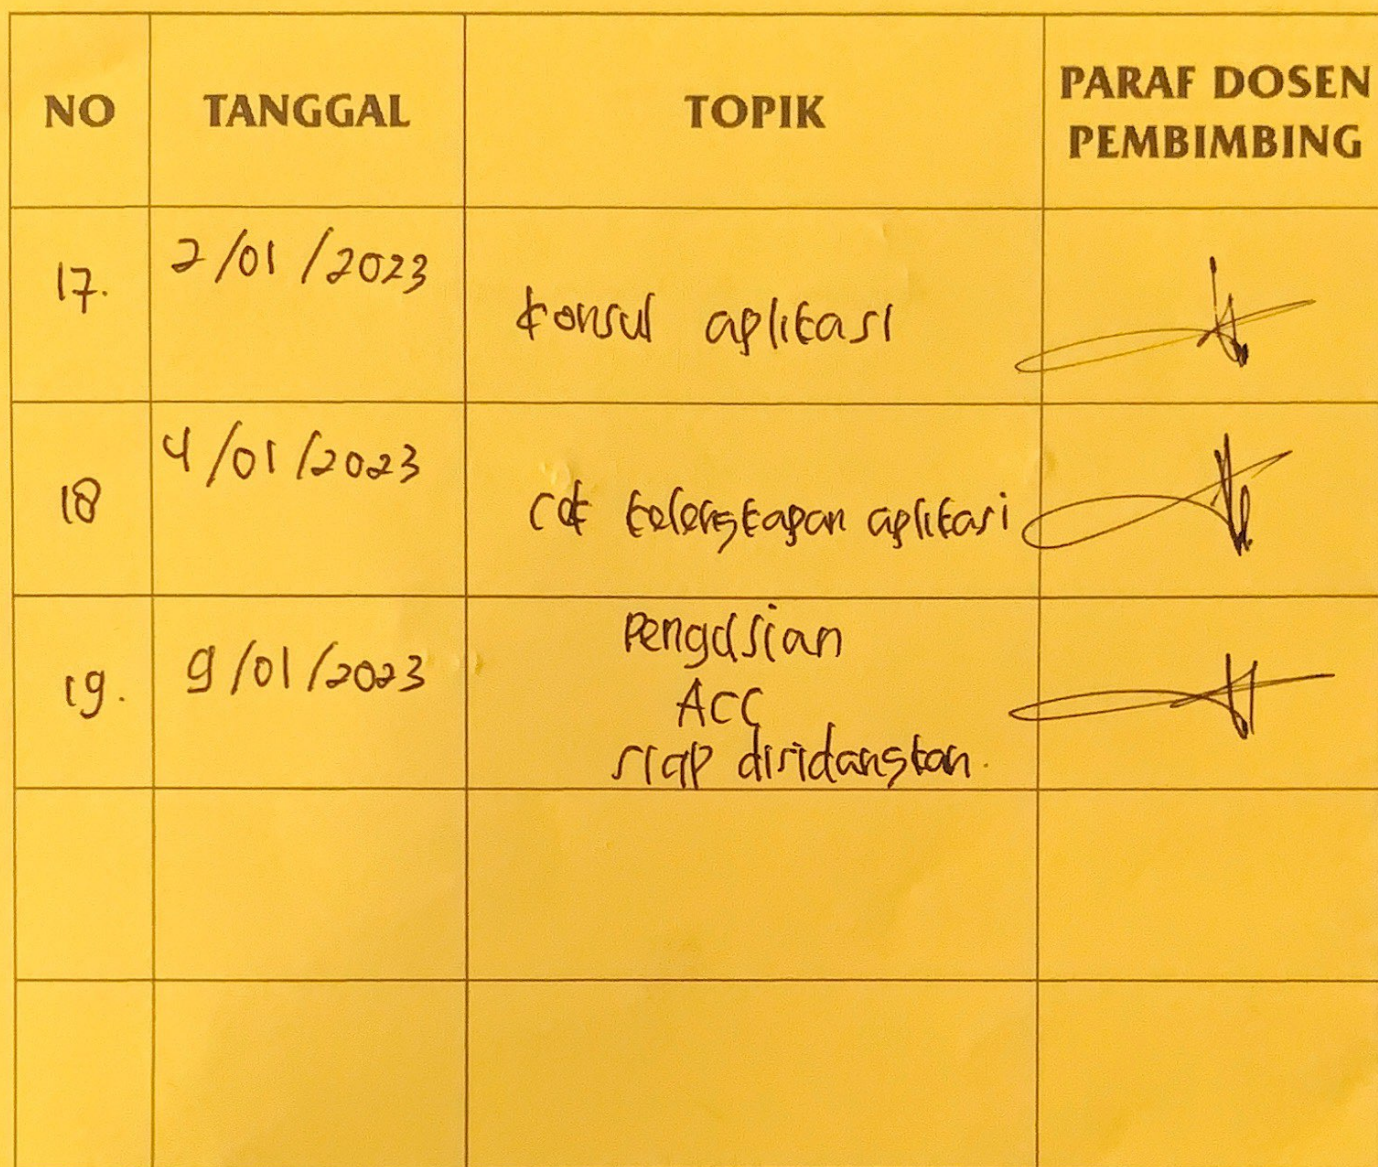 NO TANGGAL TOPIK PARAF DOSEN PEMBIMBING
17. 2/01/2023 konsul aplikasi
18 4/01/2023 cek kelengkapan aplikasi
19. 9/01/2023 Pengisian
ACC
siap disidangkan.